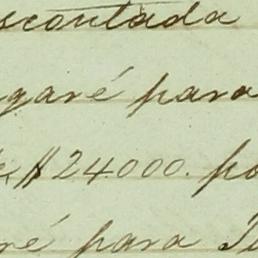 scontada
garé para
$24.000. po
ré para